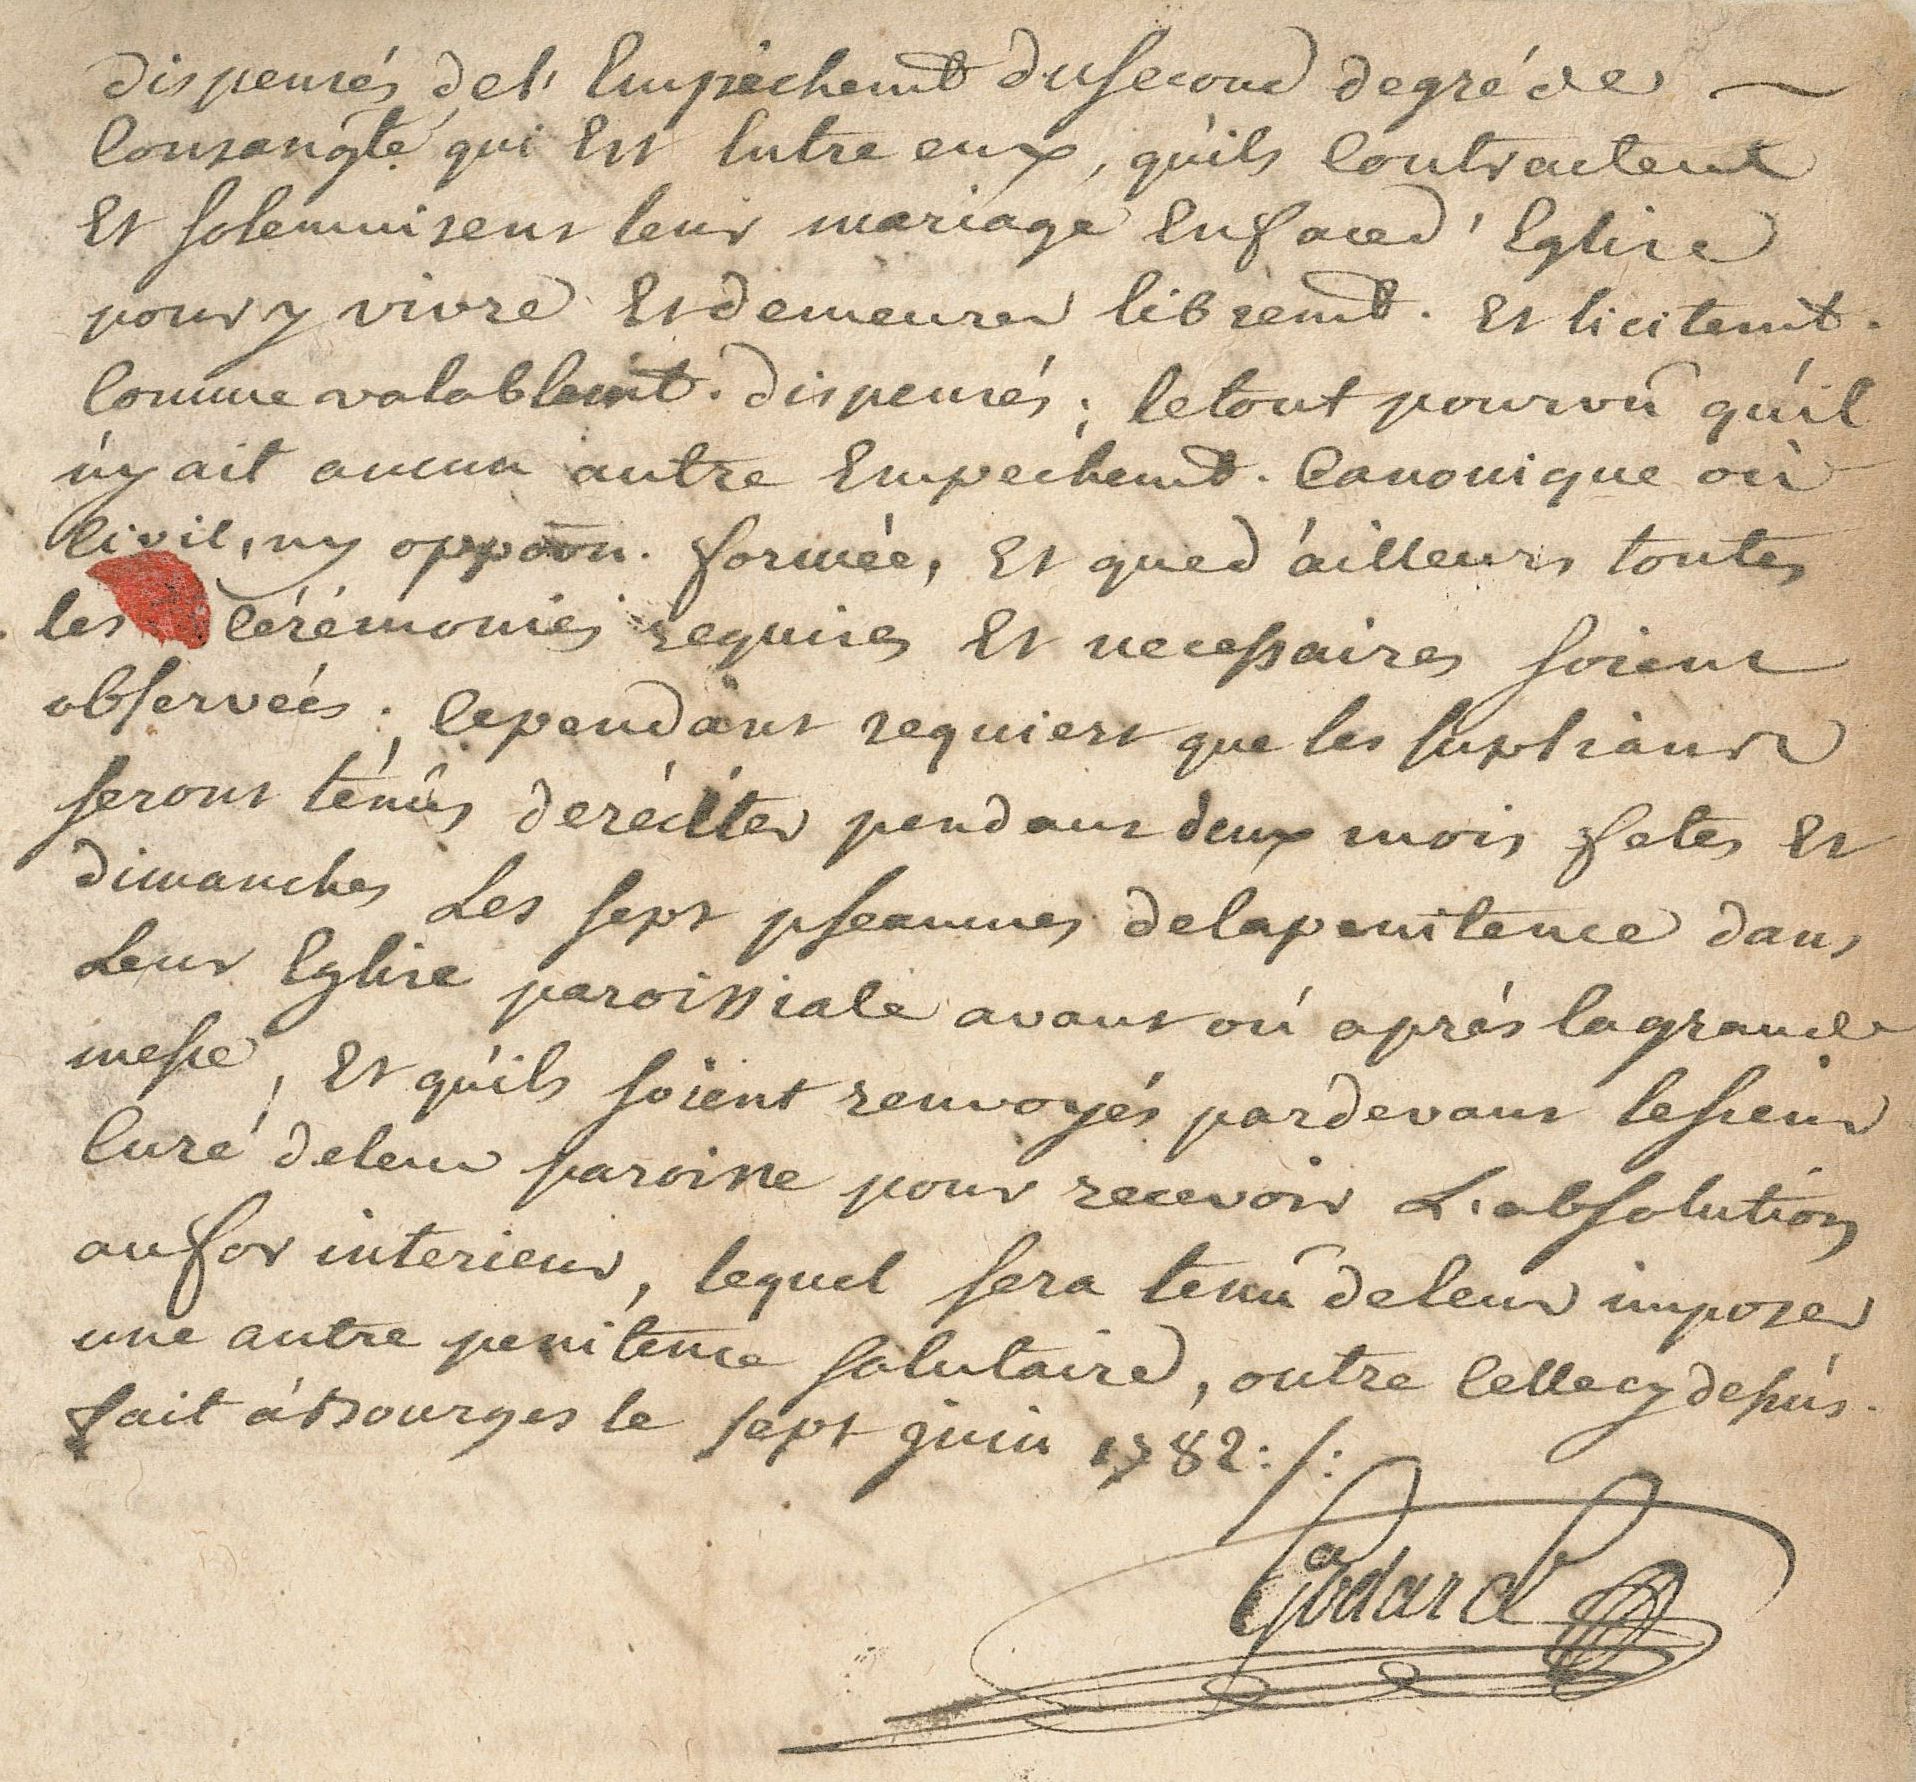 dispensés de l'Empèchemt. du second degré de
Consangté. qui Est Entre eux, qu'ils Contractent
Et solemnisent leur mariage En face d'Eglise
pour y vivre Et demeurer libremt. Et licitemt.
Comme valablemt. dispensés; le tout pourvû qu'il
n'y ait aucun autre Empechemt. Canonique où
Civil, ny oppoōn. formée, Et que d'ailleurs toutes
les Cérémonies requises Et necessaires soient
observées; Cependant requiert que les supliants
seront ténûs de réciter pendant deux mois fetes Et
dimanches Les sept pseaumes de la penitence dans
Leur Eglise paroissiale avant où après la grande
messe, Et qu'ils soient renvoyés pardevant le sieur
Curé de leur paroisse pour recevoir L'absolution
au for interieur, lequel sera tenû de leur imposer
une autre penitence salutaire, outre Celle cy dessus.
fait à Bourges le sept juin 1782 :/:
Godard